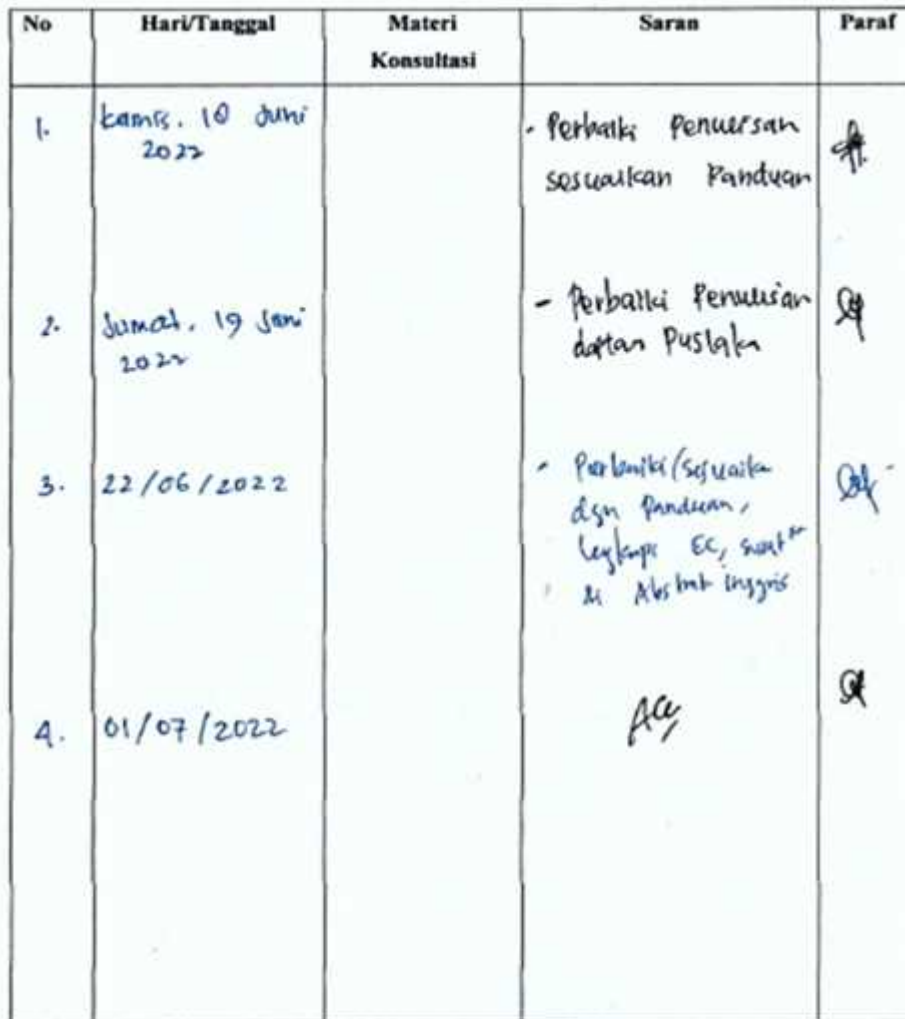 No Hari/Tanggal Materi Konsultasi Saran Paraf
1. kamis. 10 Juni
2022
- Perbaiki Penulisan
sesuaikan Panduan
2. Jumat. 19 Juni
2022
- Perbaiki Penulisan
daftar Pustaka
3. 22/06/2022
- Perbaiki/sesuaika
dgn Panduan,
lengkapi EC, surat
& Abstrak inggris
4. 01/07/2022
Acc